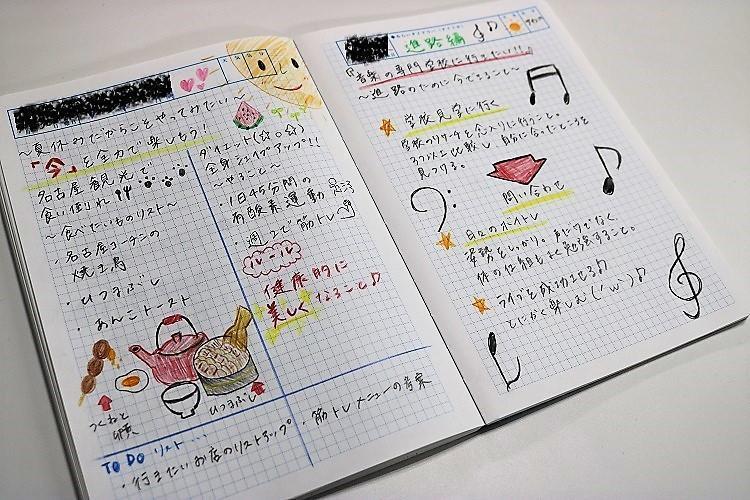 ～夏休みだからこそやってみたい～
「今」を全力で楽しもう！
名古屋観光で
食い倒れ
～食べたいものリスト～
・名古屋コーチンの
焼き鳥
・ひつまぶし
・あんこトースト
つくねと
卵黄
ひつまぶし
ダイエット
全身シェイプアップ!!
～やること～
・1日45分間の
有酸素運動
・週2で筋トレ
ルール
健康的に
美しくなること♪
TO DO リスト…
・行きたいお店のリストアップ
・筋トレメニューの考案
進路編
『音楽の専門学校に行きたい!!』
～進路のために今できること～
学校見学に行く
学校のリサーチを念入りに行うこと。
3つ以上比較し、自分に合ったところを
見つける。
問い合わせ
日々のボイトレ
姿勢をしっかり。声だけでなく、
体の仕組もよく勉強すること。
ライブを成功させる♪
とにかく楽しむ('ω')♪